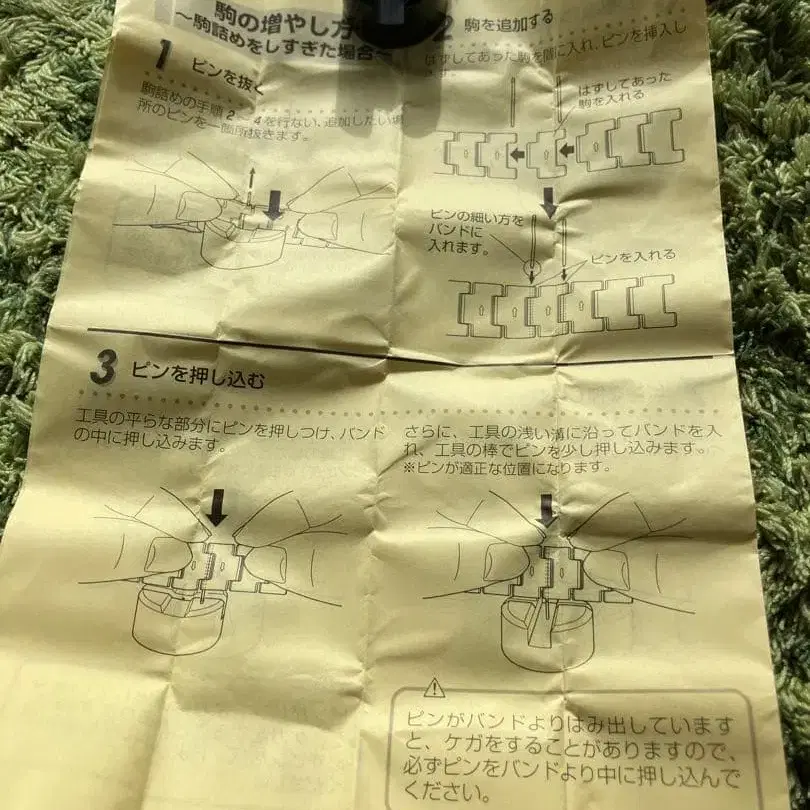 駒の増やし方
〜駒詰めをしすぎた場合〜
1 ピンを抜く
駒詰めの手順2 4を行ない、追加したい場
所のピンを一箇所抜きます。
2 駒を追加する
はずしてあった駒を間に入れ、ピンを挿入し
ます。
はずしてあった
駒を入れる
ピンの細い方を
バンドに
入れます。
ピンを入れる
3 ピンを押し込む
工具の平らな部分にピンを押しつけ、バンド
の中に押し込みます。
さらに、工具の浅い溝に沿ってバンドを入
れ、工具の棒でピンを少し押し込みます。
※ピンが適正な位置になります。
ピンがバンドよりはみ出していますと
と、ケガをすることがありますので、
必ずピンをバンドより中に押し込んで
ください。